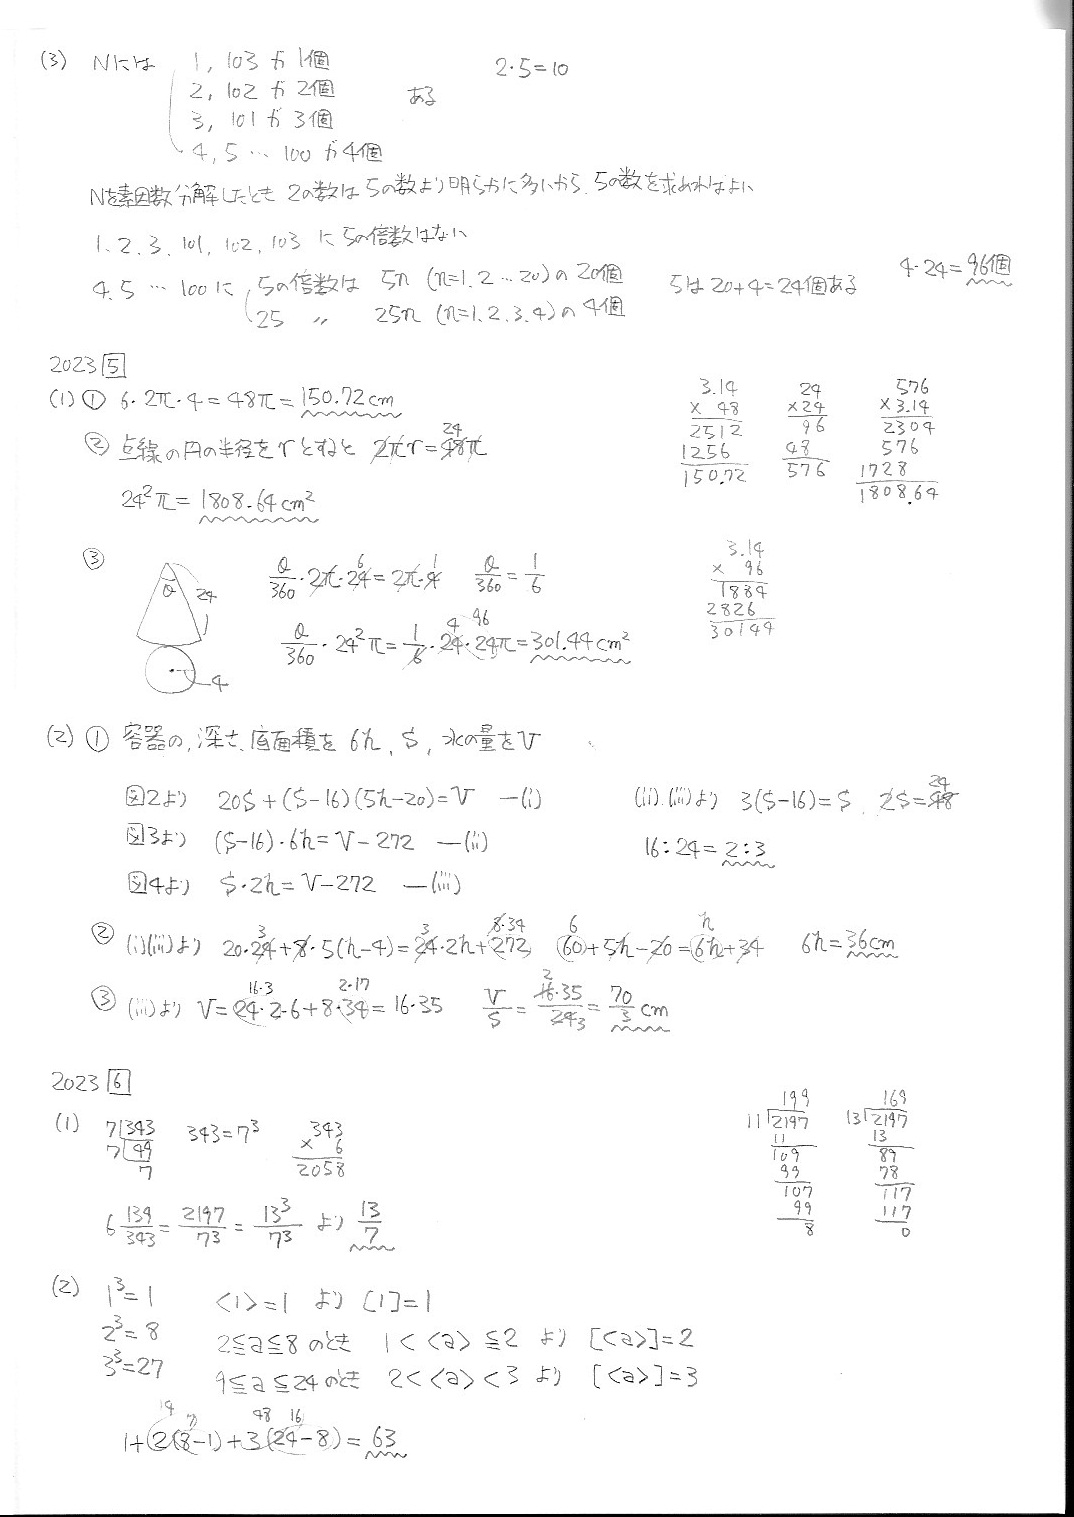 (3) Nには 1, 103 が 1個 2・5=10
2, 102 が 2個 ある
3, 101 が 3個
4, 5 … 100 が 4個
Nを素因数分解したとき 2の数は 5の数より明らかに多いから、5の数を求めればよい
1、2、3、101、102、103 に 5の倍数はない
4、5 … 100 に 5の倍数は 5n (n=1、2 … 20)の 20個 5は 20+4=24個ある 4・24=96個
25 〃 25n (n=1、2、3、4)の 4個
2023 5
(1) ① 6・2π・4=48π=150.72cm
② 点線の円の半径を r とすると 2πr=48π 24
24²π=1808.64cm²
3.14 × 48 2512 1256 150.72
24 ×24 96 48 576
576 ×3.14 2304 576 1728 1808.64
③ θ 24 4
θ/360・2π・24=2π・4 6 1 θ/360=1/6
θ/360・24²π=1/6・24・24π=301.44cm² 4 96
3.14 × 96 1884 2826 30144
(2) ① 容器の、深さ、底面積を 6h、S、水の量をV
図2より 20S+(S-16)(5h-20)=V —(i) (ii)、(iii)より 3(S-16)=S、2S=48 24
図3より (S-16)・6h=V-272 —(ii) 16:24=2:3
図4より S・2h=V-272 —(iii)
② (i)(iii)より 20・24+8・5(h-4)=24・2h+272 3 3 8・34 60+5h-20=6h+34 6 h 6h=36cm
③ (iii)より V=24・2・6+8・34=16・35 16・3 2・17 V/S=16・35/24=70/3 cm 2 3
2023 6
(1) 7)343 7)49 7 343=7³ 343 × 6 2058
6 139/343=2197/7³=13³/7³ より 13/7
11)2197 199 11 109 99 107 99 8
13)2197 169 13 89 78 117 117 0
(2) 1³=1 <1>=1 より [1]=1
2³=8 2≦a≦8 のとき 1<<a>≦2 より [<a>]=2
3³=27 9≦a≦24 のとき 2<<a><3 より [<a>]=3
14 7 48 16
1+2(8-1)+3(24-8)=63